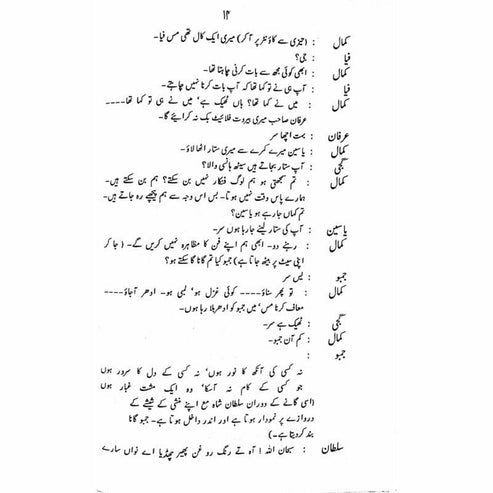 ۱۴
کمال : (تیزی سے کاؤنٹر پر آ کر) میری ایک کال تھی مس فیا۔
فیا : جی؟
کمال : ابھی کوئی مجھ سے بات کرنی چاہتا تھا۔
فیا : آپ ہی نے تو کہا تھا کہ آپ بات کرنا نہیں چاہتے۔
کمال : میں نے کہا تھا؟ ہاں ٹھیک ہے' میں نے ہی تو کہا تھا۔۔۔۔
عرفان صاحب میری بیروت فلائیٹ بک نہ کرائیے گا۔
عرفان : بہت اچھا سر
کمال : یاسین میرے کمرے سے میری ستار اٹھا لاؤ۔
گجی : آپ ستار بجاتے ہیں سیٹھ ہانسی والا؟
کمال : تم سمجھتی ہو ہم لوگ فنکار نہیں بن سکتے؟ ہم بن سکتے ہیں۔
ہمارے پاس وقت نہیں ہوتا۔ بس اس وجہ سے ہم پیچھے رہ جاتے ہیں۔
تم کہاں جا رہے ہو یاسین؟
یاسین : آپ کی ستار لینے جا رہا ہوں سر۔
کمال : رہنے دو۔ ابھی ہم اپنے فن کا مظاہرہ نہیں کریں گے۔ (جا کر
اپنی سیٹ پر بیٹھ جاتا ہے) جمبو کیا تم گانا گا سکتے ہو؟
جمبو : لیس سر
کمال : تو پھر سناؤ۔۔۔۔ کوئی غزل ہو' لمبی ہو۔ ادھر آجاؤ۔۔۔۔
معاف کرنا مس' میں جمبو کو ادھر بلا رہا ہوں۔
گجی : ٹھیک ہے سر۔
کمال : کم آن جمبو۔
جمبو :
نہ کسی کی آنکھ کا نور ہوں' نہ کسی کے دل کا سرور ہوں
جو کسی کے کام نہ آ سکا' وہ ایک مشت غبار ہوں
(اسی گانے کے دوران سلطان شاہ مع اپنے منشی کے شیشے کے
دروازے پر نمودار ہوتا ہے اور اندر داخل ہوتا ہے۔ جمبو گانا
بند کر دیتا ہے۔)
سلطان : سبحان اللہ! آہ تے رنگ رو غن پھیر چھڈیا اے نواں سارے